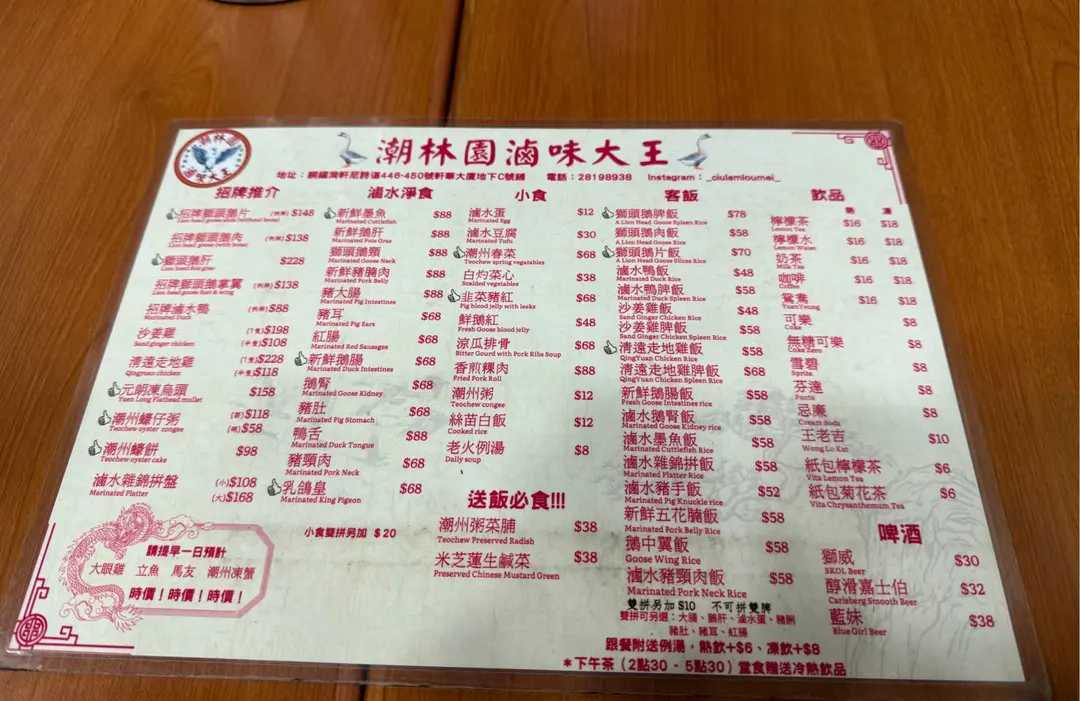 潮林園
滷味大王
潮林園滷味大王
地址：銅鑼灣軒尼詩道446-450號軒華大廈地下C號舖 電話：28198938 Instagram：_ciulamloumei_
招牌推介
招牌獅頭鵝片 (例牌) $148
Lion head goose slice (without bone)
招牌獅頭鵝肉 (例牌) $138
Lion head goose (with bone)
獅頭鵝肝 $228
Lion head foie gras
招牌獅頭鵝掌翼 (例牌) $138
招牌滷水鴨 (例牌) $88
Marinated Duck
沙姜雞 (1隻) $198
Sand ginger chicken (半隻) $108
清遠走地雞 (1隻) $228
Qingyuan chicken (半隻) $118
元朗凍烏頭 $158
Yuen Long Flathead mullet
潮州蠔仔粥 (窩) $118
Teochew oyster congee (碗) $58
潮州蠔餅 $98
Teochew oyster cake
滷水雜錦拼盤 (小) $108
Marinated Platter (大) $168
請提早一日預訂
大眼雞 立魚 馬友 潮州凍蟹
時價！時價！時價！
滷水淨食
新鮮墨魚 $88
Marinated Cuttlefish
新鮮鵝肝 $88
Marinated Foie Gras
獅頭鵝頸 $88
Marinated Goose Neck
新鮮豬腩肉 $88
Marinated Pork Belly
豬大腸 $88
Marinated Pig Intestines
豬耳 $68
Marinated Pig Ears
紅腸 $68
Marinated Red Sausages
新鮮鵝腸 $68
Marinated Duck Intestines
鵝腎 $68
Marinated Goose Kidney
豬肚 $68
Marinated Pig Stomach
鴨舌 $88
Marinated Duck Tongue
豬頸肉 $68
Marinated Pork Neck
乳鴿皇 $68
Marinated King Pigeon
小食雙拼另加 $20
小食
滷水蛋 $12
Marinated Egg
滷水豆腐 $30
Marinated Tofu
潮州春菜 $68
Teochew spring vegatables
白灼菜心 $38
Scalded vegetables
韭菜豬紅 $68
Pig blood jelly with leeks
鮮鵝紅 $48
Fresh Goose blood jelly
涼瓜排骨 $68
Bitter Gourd with Pork Ribs Soup
香煎粿肉 $88
Fried Pork Roll
潮州粥 $12
Teochew congee
絲苗白飯 $12
Cooked rice
老火例湯 $8
Daily soup
送飯必食!!!
潮州粥菜脯 $38
Teochew Preserved Radish
米芝蓮生鹹菜 $38
Preserved Chinese Mustard Green
客飯
獅頭鵝脾飯 $78
A Lion Head Goose Spleen Rice
獅頭鵝肉飯 $58
A Lion Head Goose Rice
獅頭鵝片飯 $70
A Lion Head Goose Slices Rice
滷水鴨飯 $48
Marinated Duck Rice
滷水鴨脾飯 $58
Marinated Duck Spleen Rice
沙姜雞飯 $48
Sand Ginger Chicken Rice
沙姜雞脾飯 $58
Sand Ginger Chicken Spleen Rice
清遠走地雞飯 $58
QingYuan Chicken Rice
清遠走地雞脾飯 $68
QingYuan Chicken Spleen Rice
新鮮鵝腸飯 $58
Fresh Goose Intestines rice
滷水鵝腎飯 $58
Marinated Goose Kidney rice
滷水墨魚飯 $58
Marinated Cuttlefish Rice
滷水雜錦拼飯 $58
Marinated Platter Rice
滷水豬手飯 $52
Marinated Pig Knuckle rice
新鮮五花腩飯 $58
Marinated Pork Belly Rice
鵝中翼飯 $58
Goose Wing Rice
滷水豬頸肉飯 $58
Marinated Pork Neck Rice
雙拼另加$10 不可拼雙脾
雙拼可另選：大腸、鵝肝、滷水蛋、豬脷
豬肚、豬耳、紅腸
跟餐附送例湯，熱飲+$6、凍飲+$8
*下午茶（2點30 - 5點30）堂食贈送冷熱飲品
飲品
熱 凍
檸檬茶 $16 $18
Lemon Tea
檸檬水 $16 $18
Lemon Water
奶茶 $16 $18
Milk Tea
咖啡 $16 $18
Coffee
鴛鴦 $16 $18
YuenYeung
可樂 $8
Coke
無糖可樂 $8
Coke Zero
雪碧 $8
Sprite
芬達 $8
Fanta
忌廉 $8
Cream Soda
王老吉 $10
Wong Lo Kat
紙包檸檬茶 $6
Vita Lemon Tea
紙包菊花茶 $6
Vita Chrysanthemum Tea
啤酒
獅威 $30
SKOL Beer
醇滑嘉士伯 $32
Carlsberg Smooth Beer
藍妹 $38
Blue Girl Beer